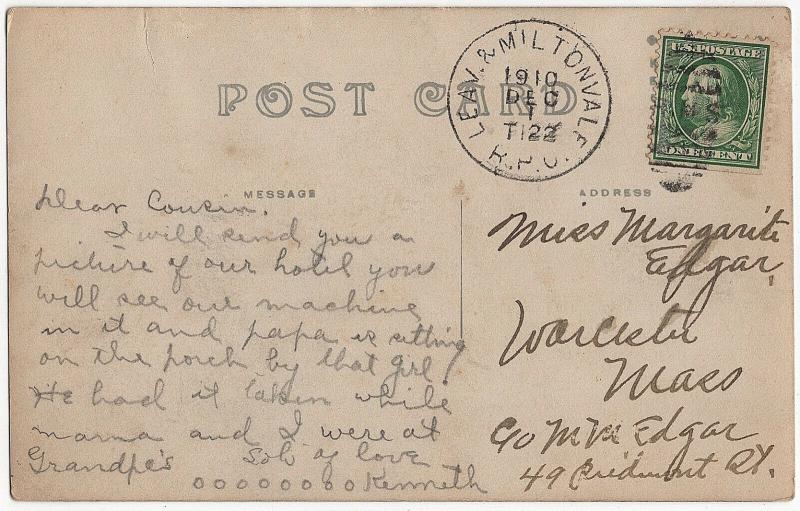 POST CARD
LEAV. & MILTONVALE
1910
DEC
1
T122
R.P.O.
U.S. POSTAGE
MESSAGE
ADDRESS
Dear Cousin.
I will send you a
picture of our hotel you
will see our machine
in it and papa is sitting
on the porch by that girl
He had it taken while
mama and I were at
Grandpe's Sob of love
ooooooooo Kenneth
Miss Margarite
Edgar,
Worcester
Mass
c/o Edgar
49 Piedmont St.